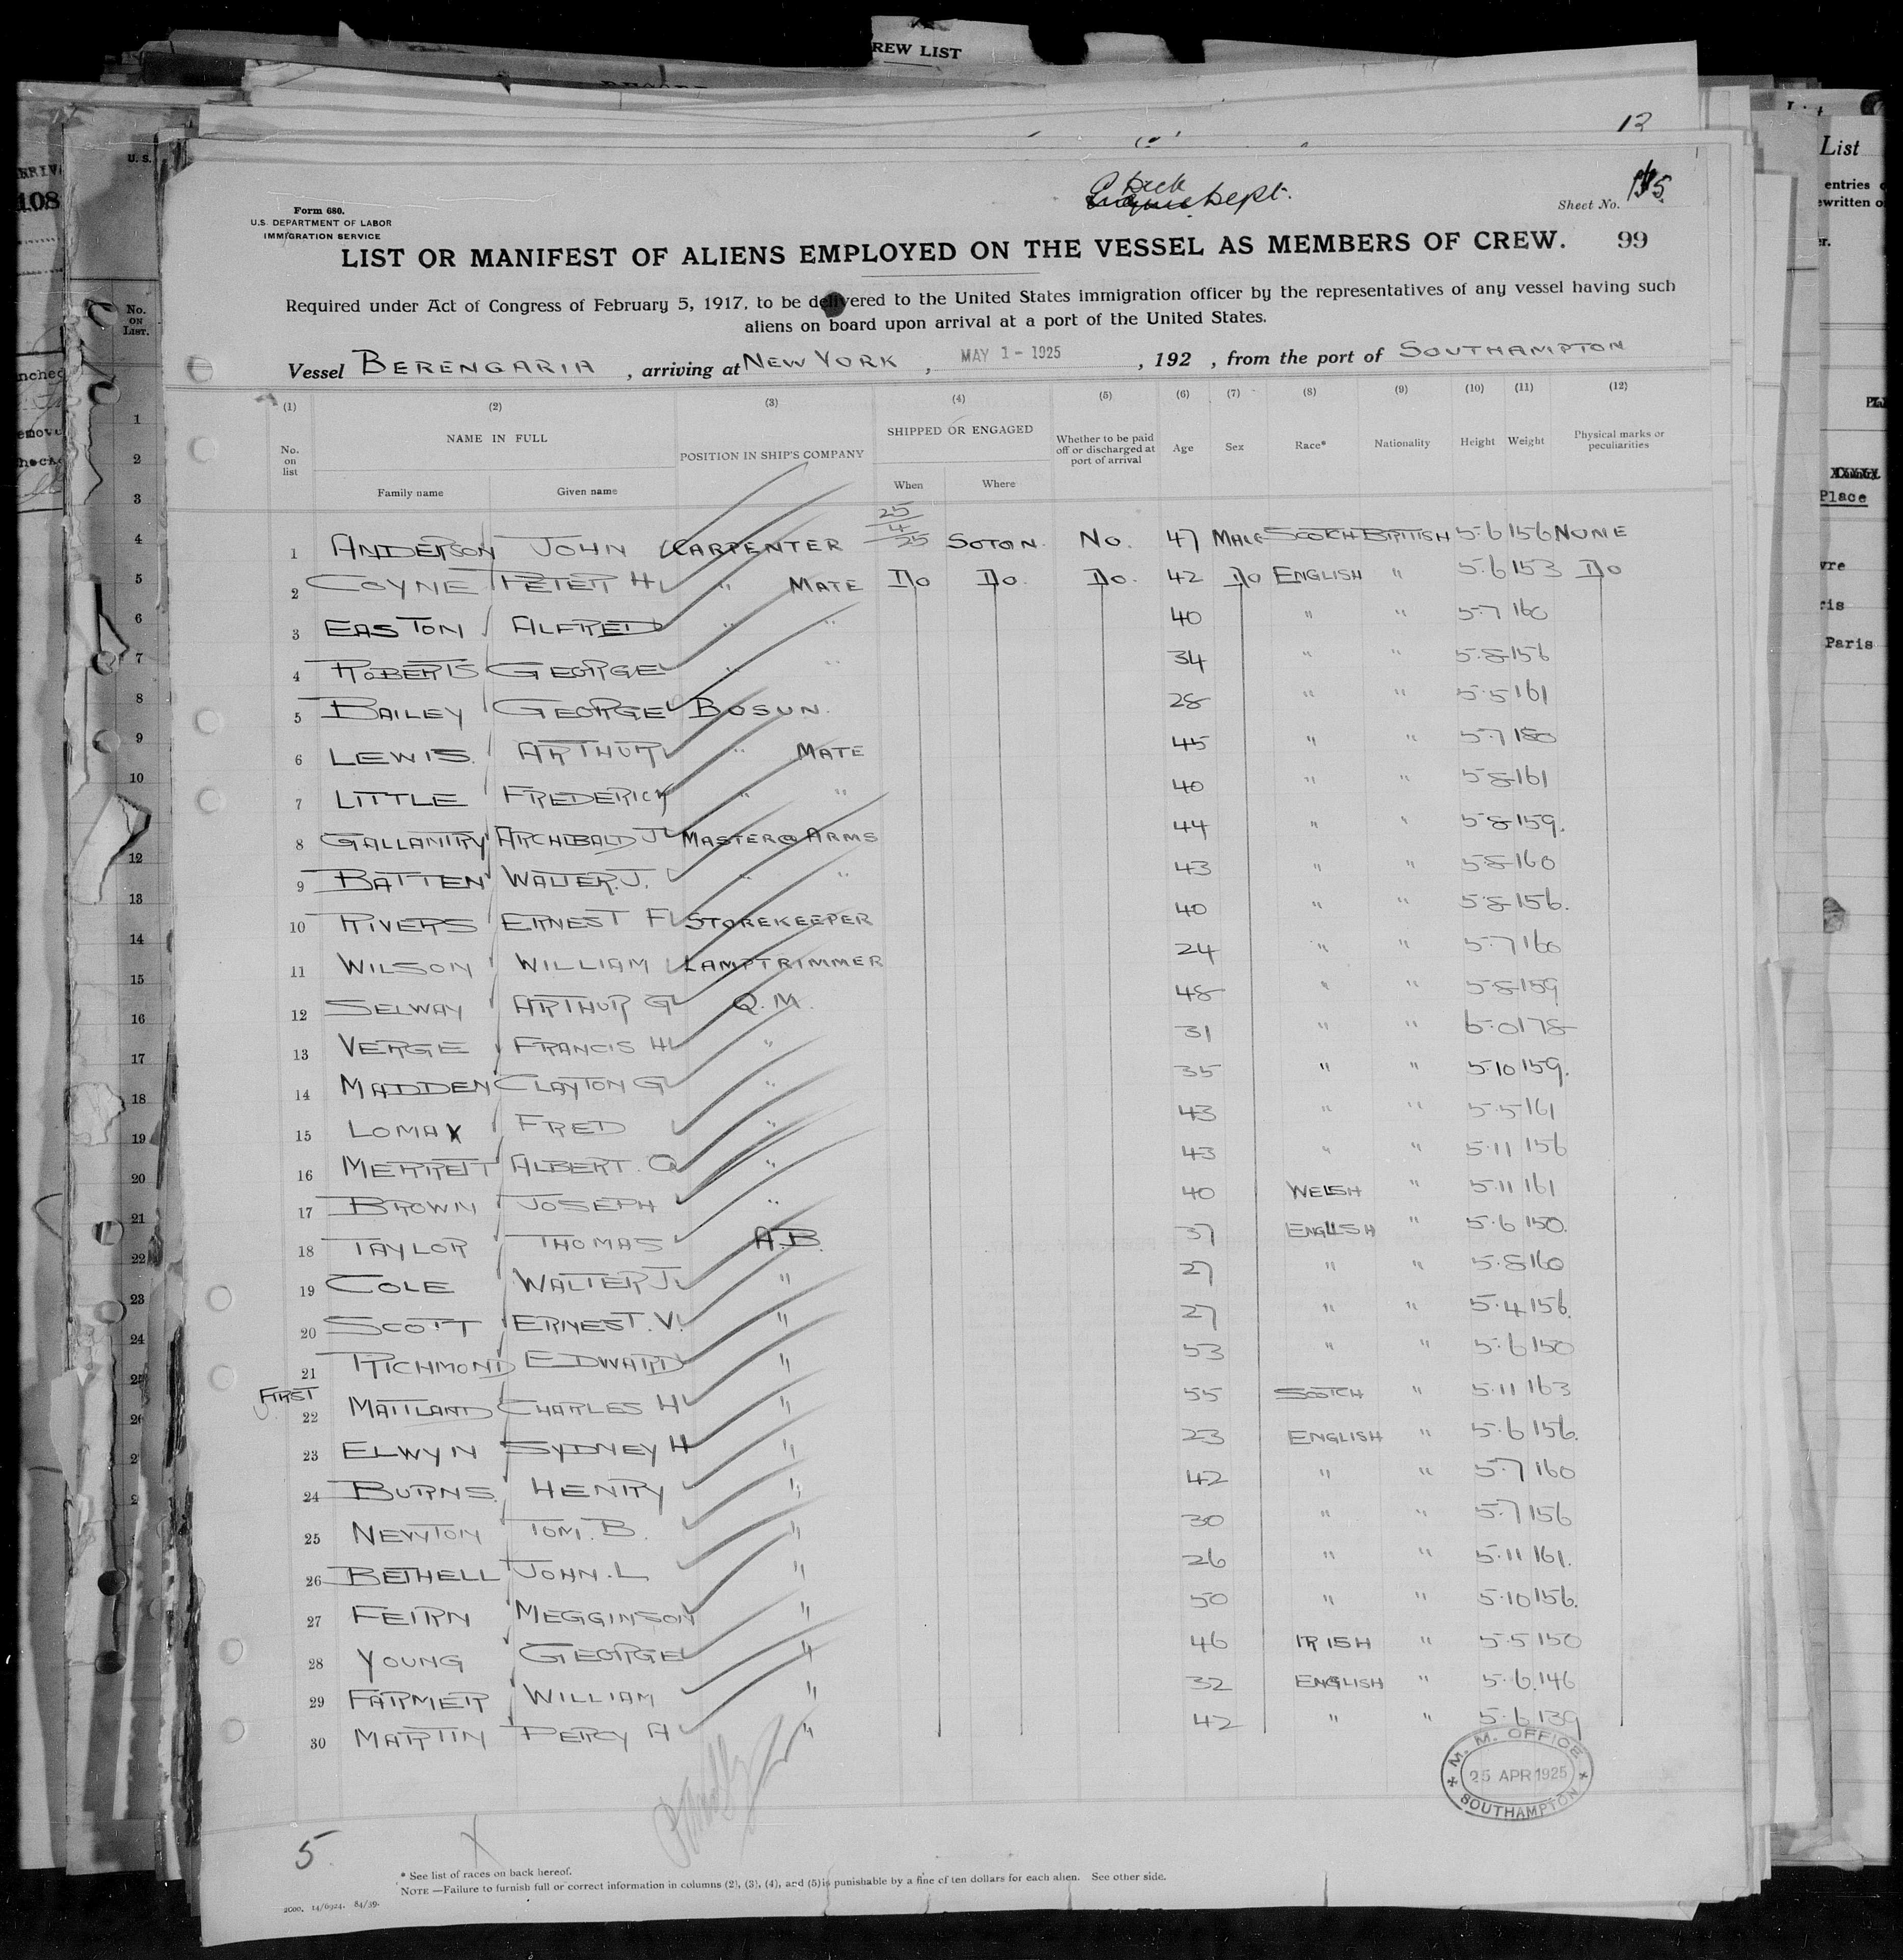 REW LIST
13
Deck
Dept.
Form 680.
U.S. DEPARTMENT OF LABOR
IMMIGRATION SERVICE
Sheet No.
LIST OR MANIFEST OF ALIENS EMPLOYED ON THE VESSEL AS MEMBERS OF CREW. 99
Required under Act of Congress of February 5, 1917, to be delivered to the United States immigration officer by the representatives of any vessel having such
aliens on board upon arrival at a port of the United States.
Vessel BERENGARIA, arriving at NEW YORK, MAY 1 - 1925, 192 , from the port of SOUTHAMPTON
(1) (2) (3) (4) (5) (6) (7) (8) (9) (10) (11) (12)
No. on list NAME IN FULL POSITION IN SHIP'S COMPANY SHIPPED OR ENGAGED Whether to be paid off or discharged at port of arrival Age Sex Race* Nationality Height Weight Physical marks or peculiarities
Family name Given name When Where
1 ANDERSON JOHN CARPENTER 25/4/25 SOTON. NO. 47 MALE SCOTCH BRITISH 5·6 156 NONE
2 COYNE PETER H " MATE DO DO. DO. 42 DO ENGLISH " 5·6 153 DO
3 EASTON ALFRED " " 40 " " 5·7 160
4 ROBERTS GEORGE " " 34 " " 5·8 156
5 BAILEY GEORGE BOSUN. 28 " " 5·5 161
6 LEWIS. ARTHUR " MATE 45 " " 5·7 180
7 LITTLE FREDERICK " " 40 " " 5·8 161
8 GALLANTRY ARCHIBALD J MASTER@ARMS 44 " " 5·8 159.
9 BATTEN WALTER.J. " " 43 " " 5·8 160
10 RIVERS ERNEST F STOREKEEPER 40 " " 5·8 156.
11 WILSON WILLIAM LAMPTRIMMER 24 " " 5·7 160
12 SELWAY ARTHUR G Q.M. 48 " " 5·8 159
13 VERGE FRANCIS H " 31 " " 6·0 178
14 MADDEN CLAYTON G " 35 " " 5·10 159.
15 LOMAX FRED " 43 " " 5·5 161
16 MERRETT ALBERT. O " 43 " " 5·11 156
17 BROWN JOSEPH " 40 WELSH " 5·11 161
18 TAYLOR THOMAS A.B. 37 ENGLISH " 5·6 150.
19 COLE WALTER J. " 27 " " 5·8 160
20 SCOTT ERNEST.V. " 27 " " 5·4 156.
21 RICHMOND EDWARD " 53 " " 5·6 150
FIRST
22 MAITLAND CHARLES H " 55 SCOTCH " 5·11 163
23 ELWYN SYDNEY H " 23 ENGLISH " 5·6 156.
24 BURNS. HENRY " 42 " " 5·7 160
25 NEWTON TOM. B. " 30 " " 5·7 156
26 BETHELL JOHN. L " 26 " " 5·11 161.
27 FEIRN MEGGINSON " 50 " " 5·10 156.
28 YOUNG GEORGE " 46 IRISH " 5·5 150
29 FARMER WILLIAM " 32 ENGLISH " 5·6. 146
30 MARTIN PERCY A " 42 " " 5·6 139
M. M. OFFICE
25 APR 1925
SOUTHAMPTON
5
* See list of races on back hereof.
NOTE —Failure to furnish full or correct information in columns (2), (3), (4), and (5) is punishable by a fine of ten dollars for each alien. See other side.
2000. 14/6924. 84/39.
U. S.
108
No. ON LIST.
List
entries
Place
Paris